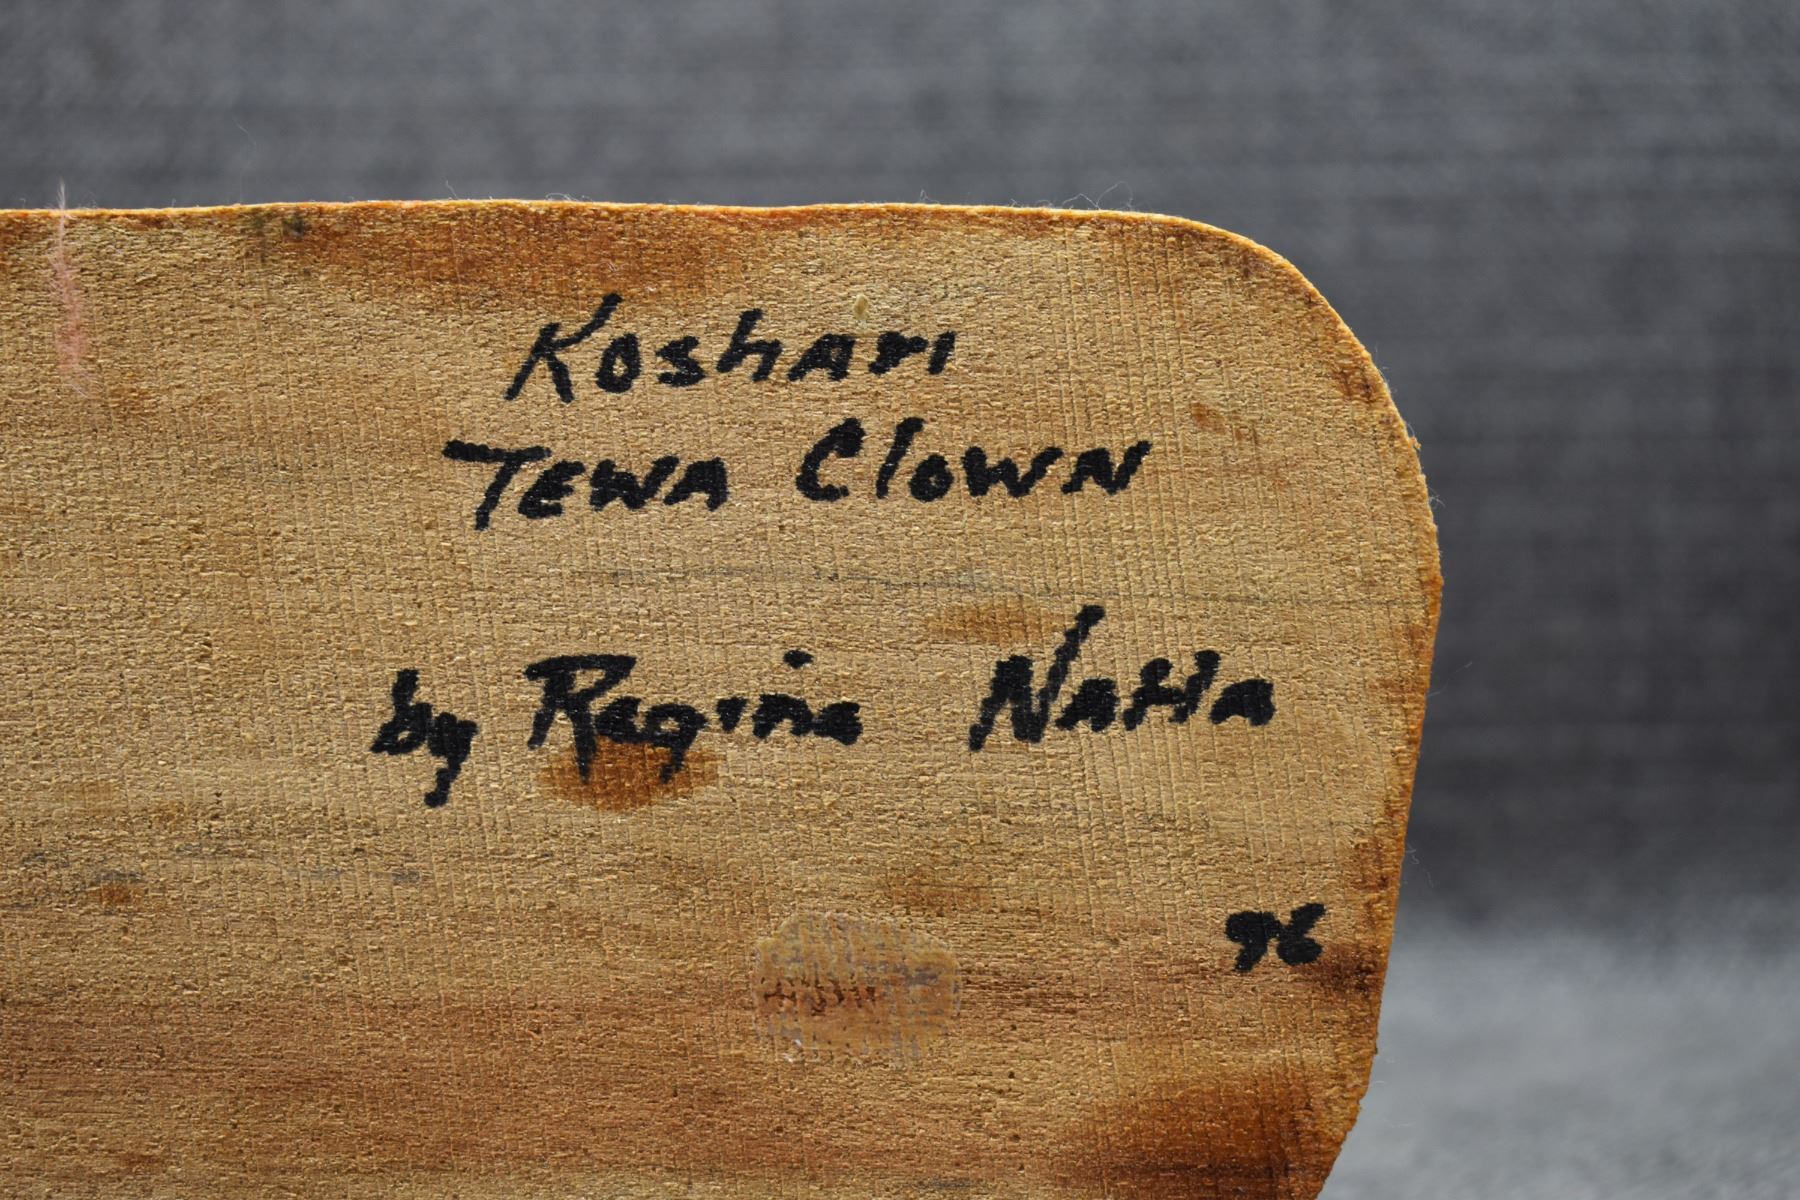 Koshari
TEWA Clown
by Regina Naha
96